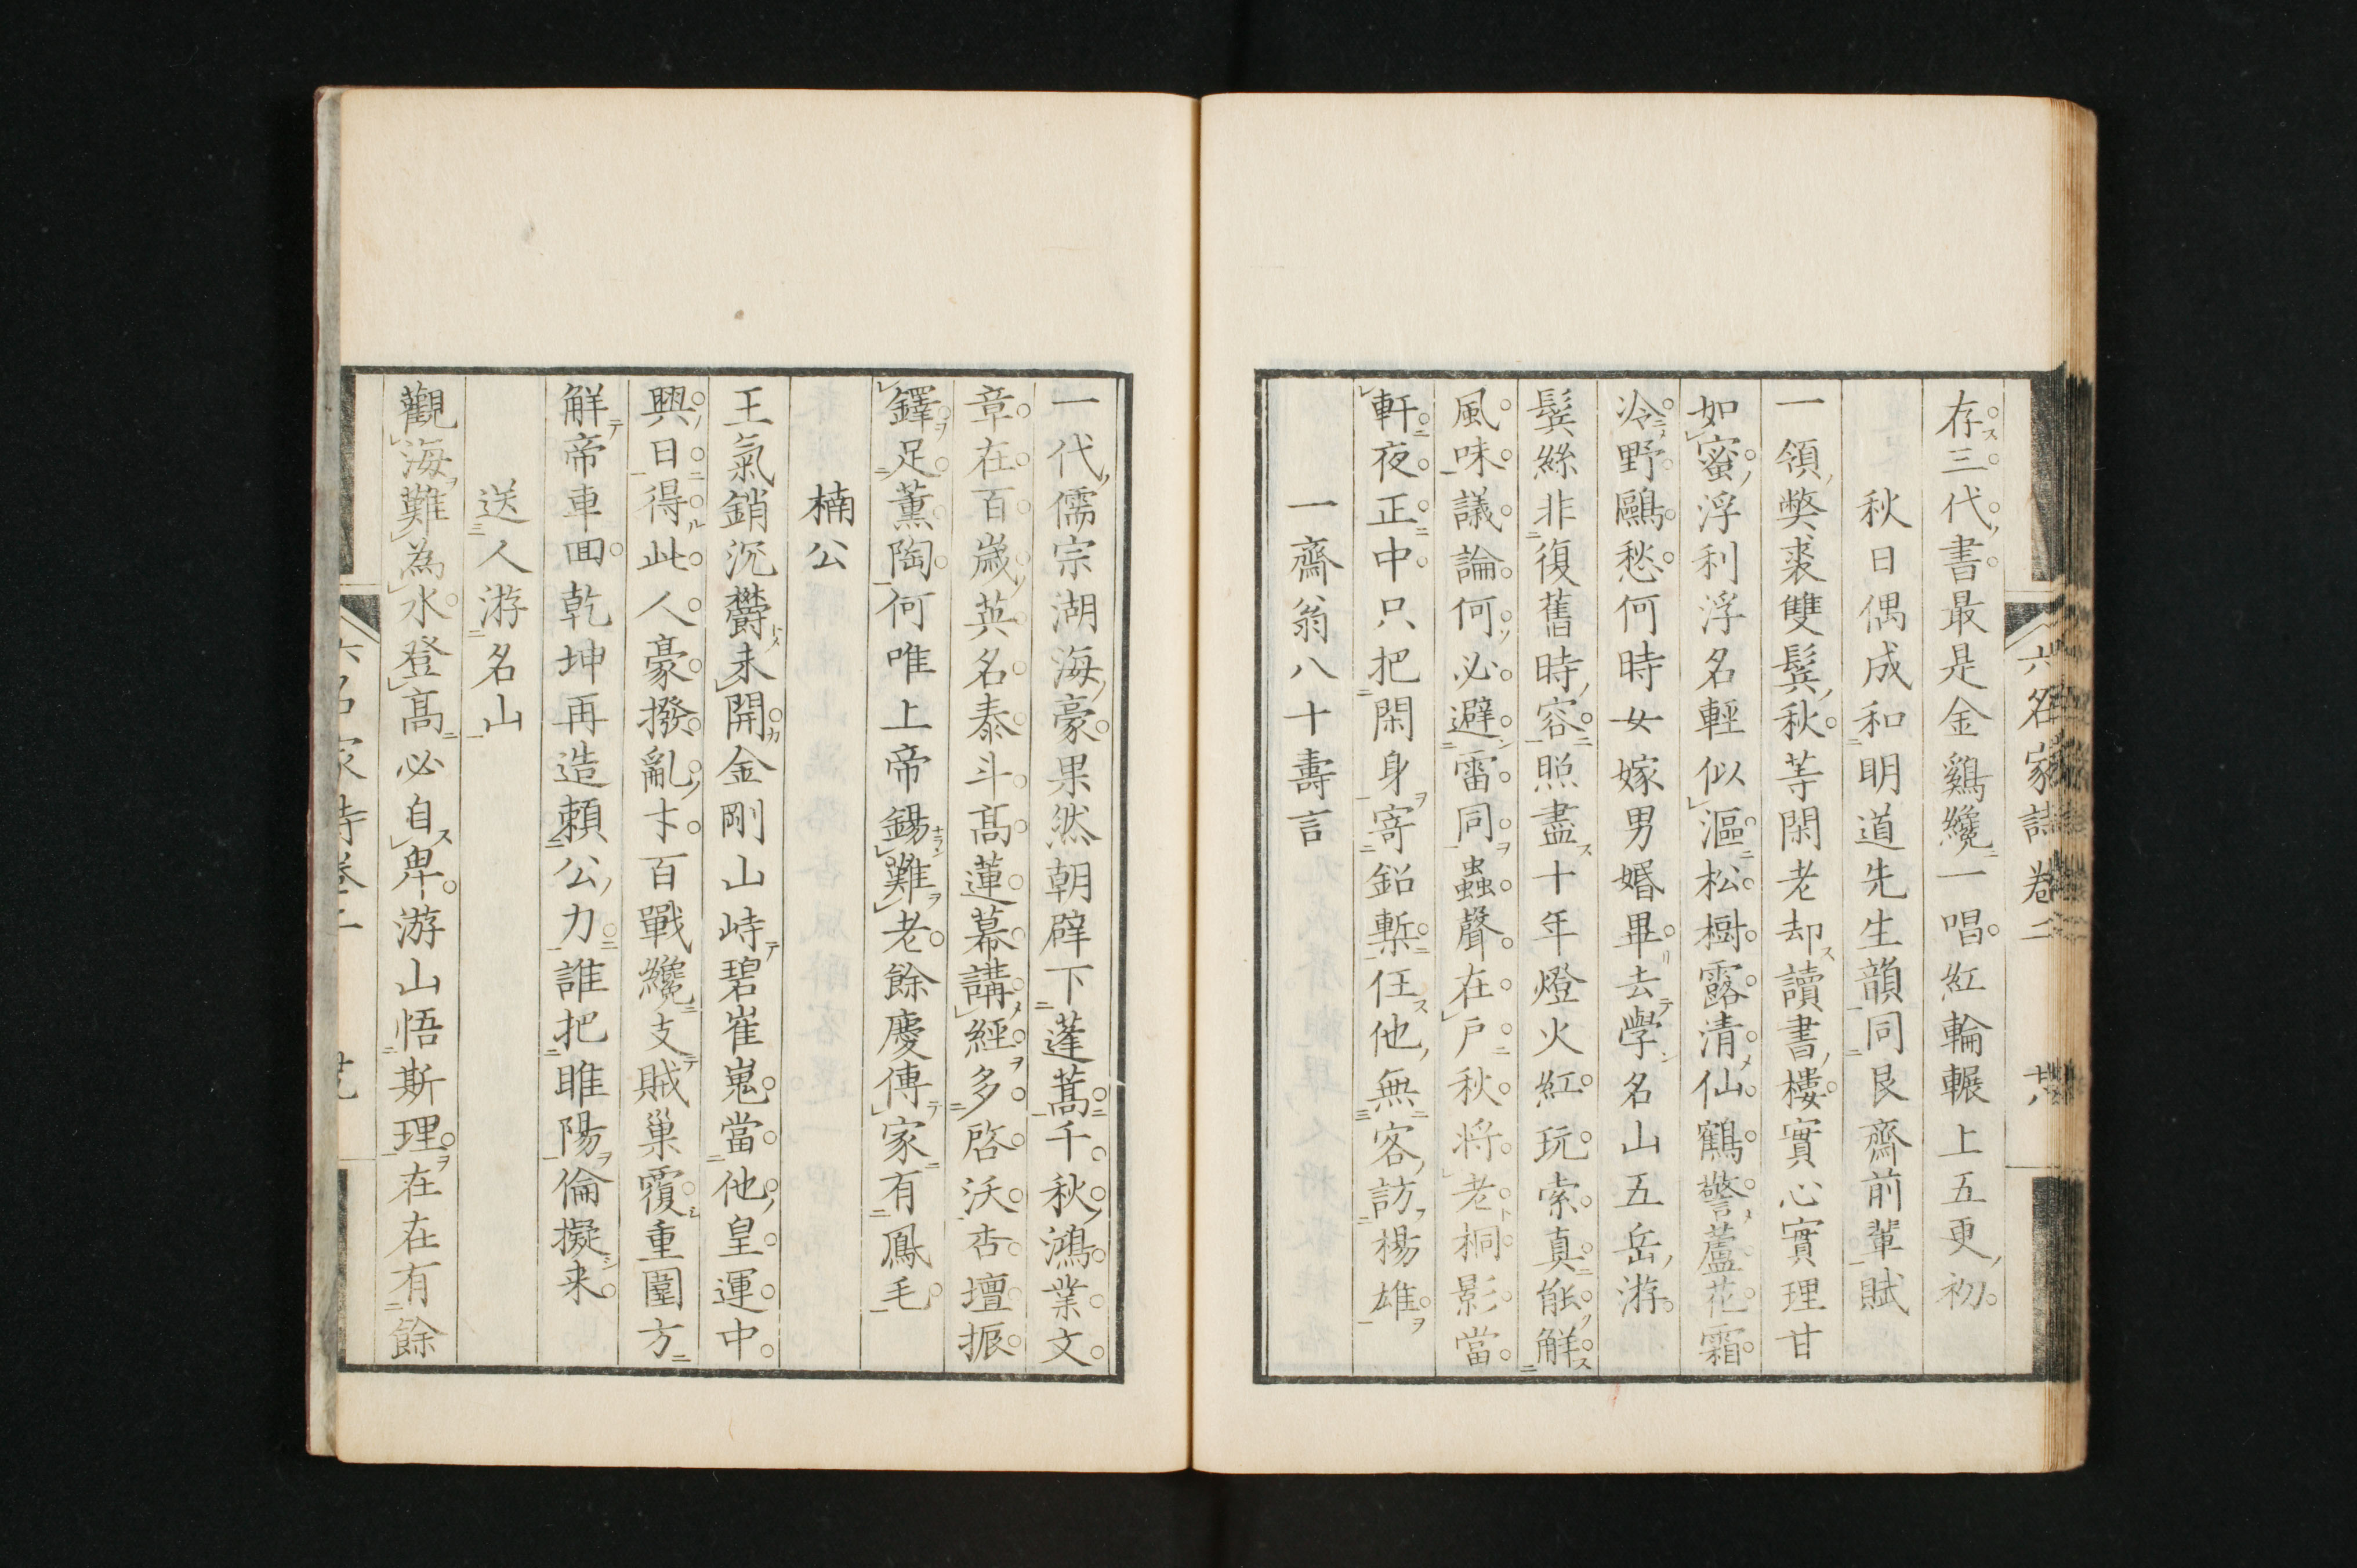 六名家詩卷二 廿八
存三代書最是金鷄纔一唱紅輪輾上五更初
秋日偶成和明道先生韻同艮齋前輩賦
一領弊裘雙鬂秋等閑老却讀書樓實心實理甘
如蜜浮利浮名輕似漚松樹露清仙鶴警蘆花霜
冷野鷗愁何時女嫁男婚畢去學名山五岳游
鬂絲非復舊時容照盡十年燈火紅玩索真能解
風味議論何必避雷同蟲聲在戶秋將老桐影當
軒夜正中只把閑身寄鉛槧任他無客訪楊雄
一齋翁八十壽言
一代儒宗湖海豪果然朝辟下蓬蒿千秋鴻業文
章在百歲英名泰斗高蓮幕講經多啓沃杏壇振
鐸足薰陶何唯上帝錫難老餘慶傳家有鳳毛
楠公
王氣銷沉欝未開金剛山峙碧崔嵬當他皇運中
興日得此人豪撥亂才百戰纔支賊巢覆重圍方
解帝車回乾坤再造賴公力誰把睢陽倫擬来
送人游名山
觀海難為水登高必自卑游山悟斯理在在有餘
六名家詩卷二